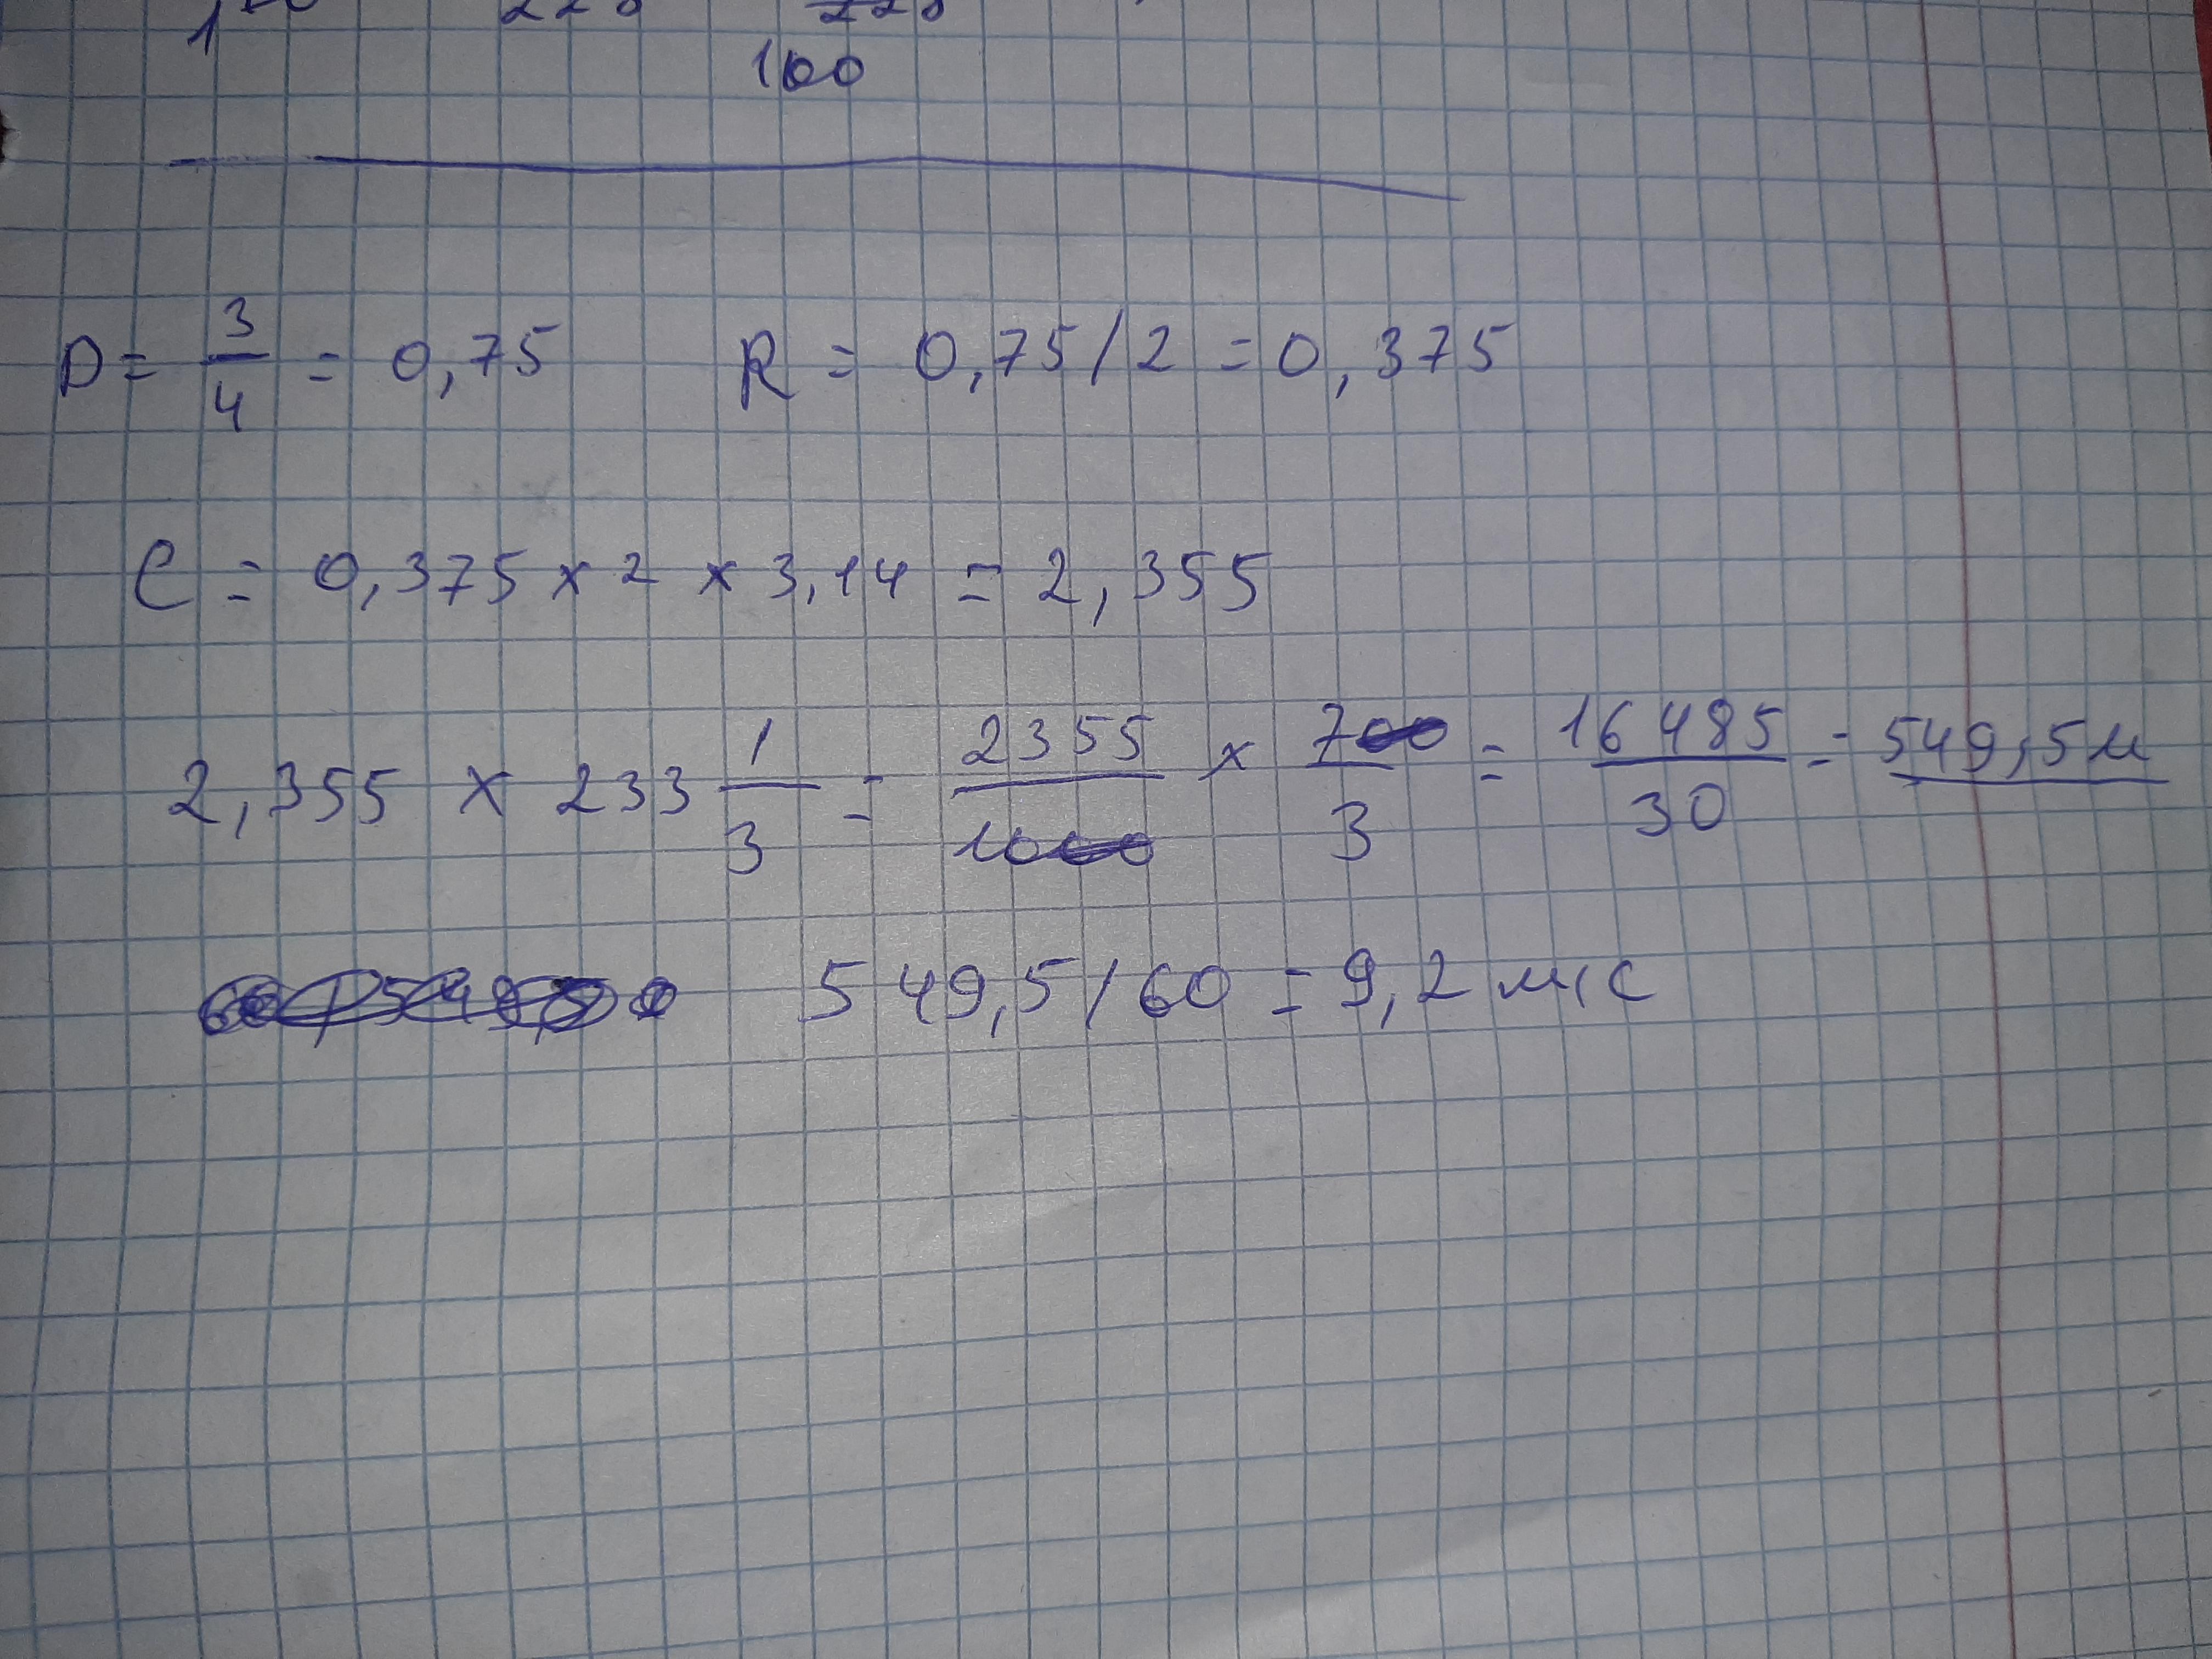 100
D = 3/4 = 0,75 R = 0,75/2 = 0,375
C = 0,375 x 2 x 3,14 = 2,355
2,355 x 233 1/3 = 2355/1000 x 700/3 = 16485/30 = 549,5 м
549,5/60 = 9,2 м/с